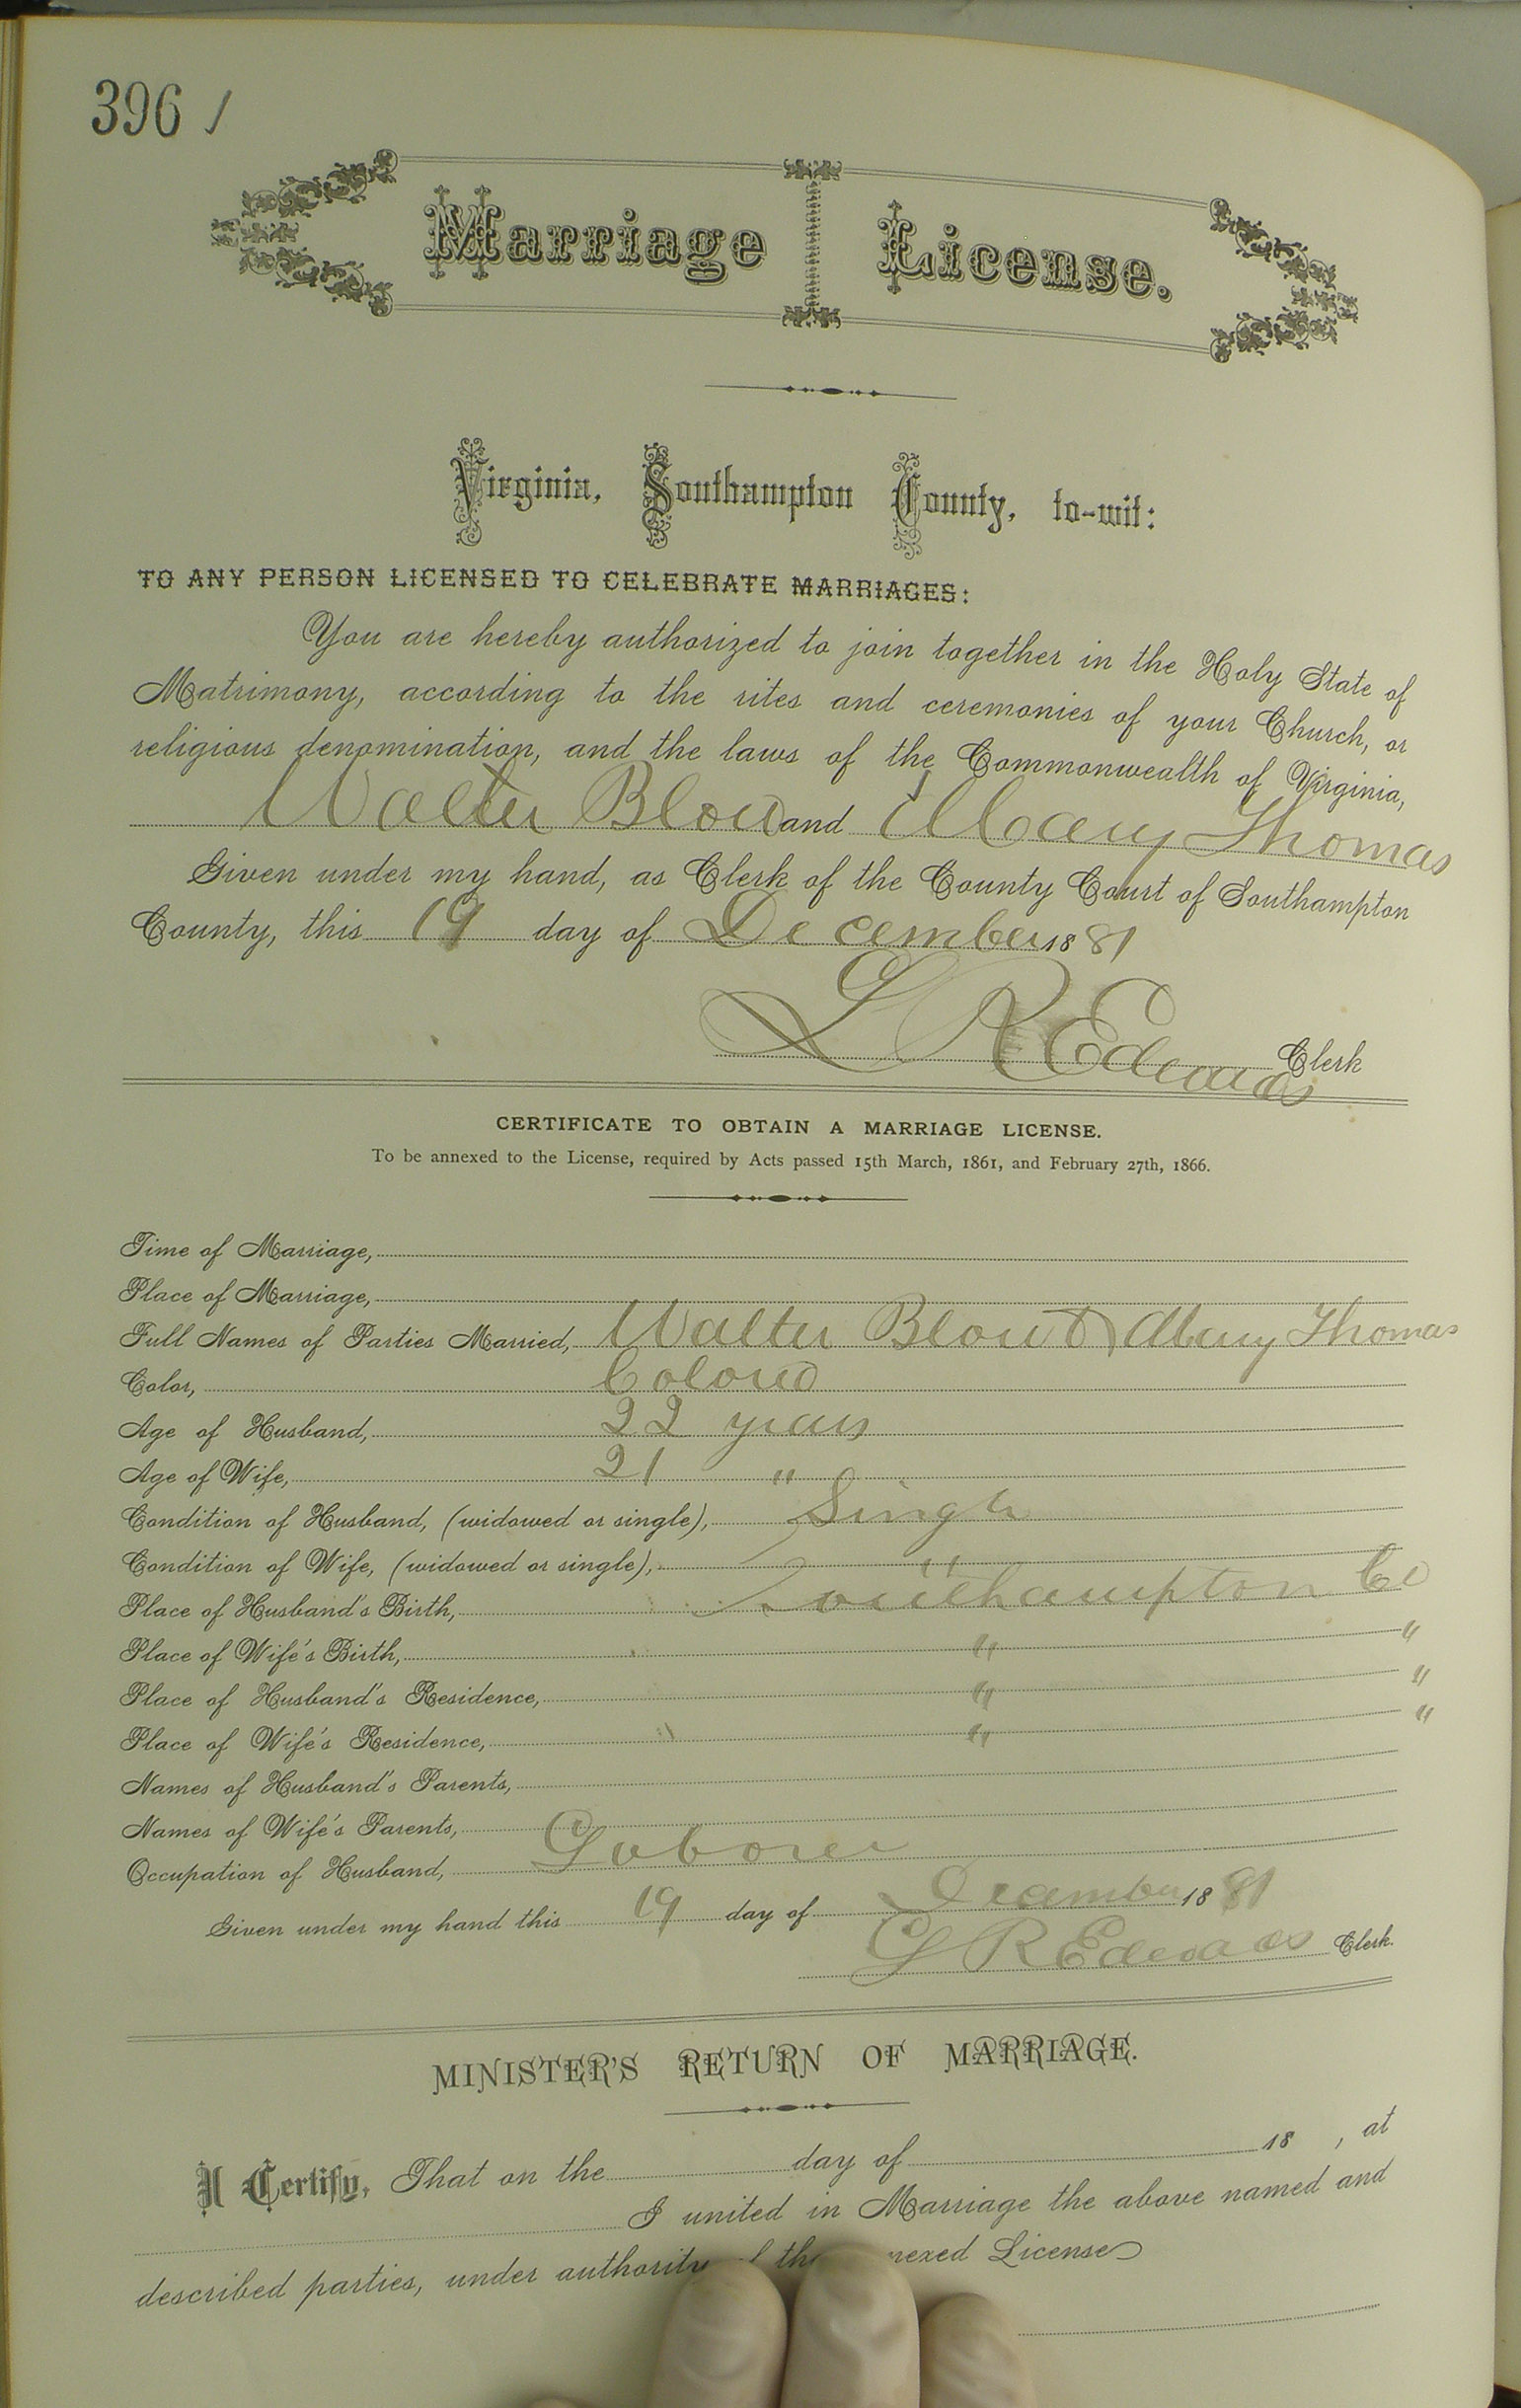 396 /
Marriage License.
Virginia, Southampton County, to-wit:
TO ANY PERSON LICENSED TO CELEBRATE MARRIAGES:
You are hereby authorized to join together in the Holy State of
Matrimony, according to the rites and ceremonies of your Church, or
religious denomination, and the laws of the Commonwealth of Virginia,
Walter Blow and Mary Thomas
Given under my hand, as Clerk of the County Court of Southampton
County, this 19 day of December 1881
L R Edwards Clerk
CERTIFICATE TO OBTAIN A MARRIAGE LICENSE.
To be annexed to the License, required by Acts passed 15th March, 1861, and February 27th, 1866.
Time of Marriage,
Place of Marriage,
Full Names of Parties Married, Walter Blow & Mary Thomas
Color, Colored
Age of Husband, 22 years
Age of Wife, 21 "
Condition of Husband, (widowed or single), Single
Condition of Wife, (widowed or single), "
Place of Husband's Birth, Southampton Co
Place of Wife's Birth, " "
Place of Husband's Residence, " "
Place of Wife's Residence, " "
Names of Husband's Parents,
Names of Wife's Parents,
Occupation of Husband, Laborer
Given under my hand this 19 day of December 1881
L R Edwards Clerk.
MINISTER'S RETURN OF MARRIAGE.
I Certify, That on the day of 18 , at
I united in Marriage the above named and
described parties, under authority License